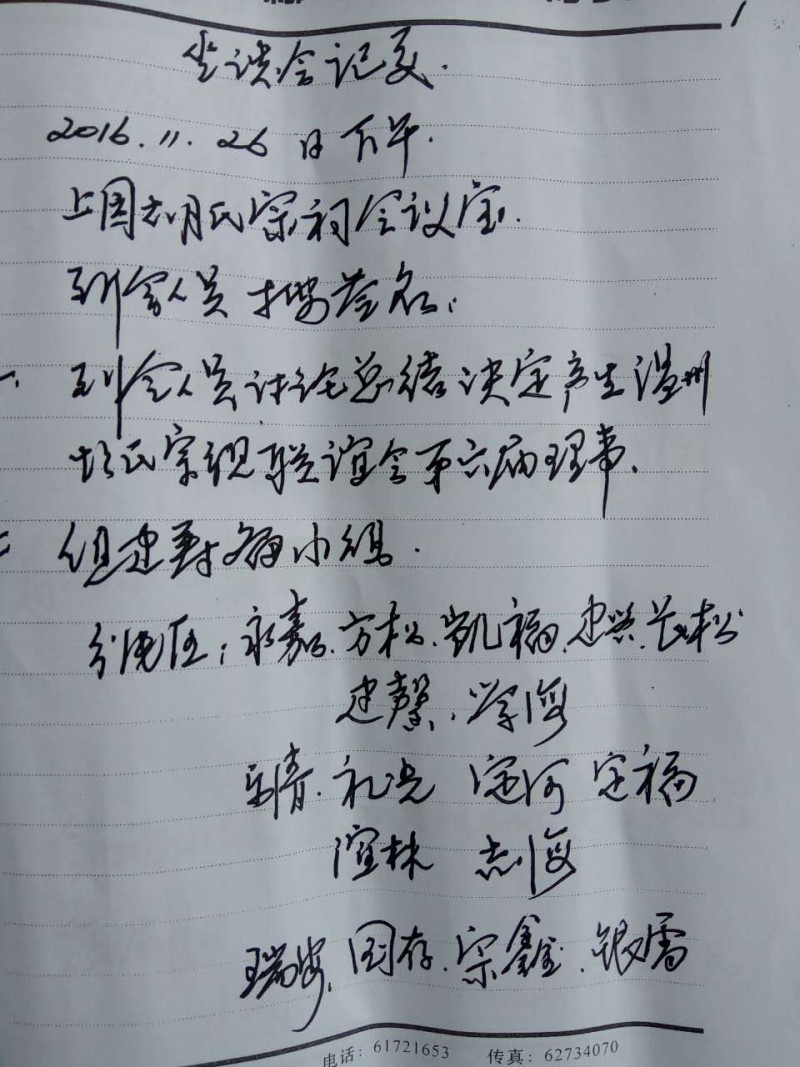 1
座谈会记录.
2016.11.26日下午.
上围胡氏宗祠会议室.
到会人员 签名:
一、到会人员讨论总结决定产生温州
胡氏宗亲联谊会第六届理事.
二 组建 小组.
分地区:永嘉.方松.凯福.建兴.长松
建馨.学海
乐清.礼光 定河 定福
谊林 志海
瑞安.国存.宗鑫.银雷
电话:61721653 传真:62734070